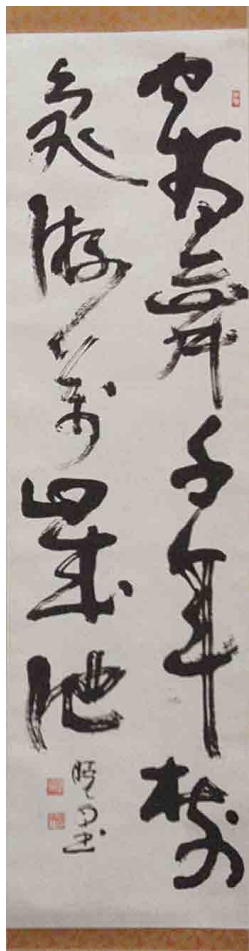 鶴舞千年樹
亀游萬歳池